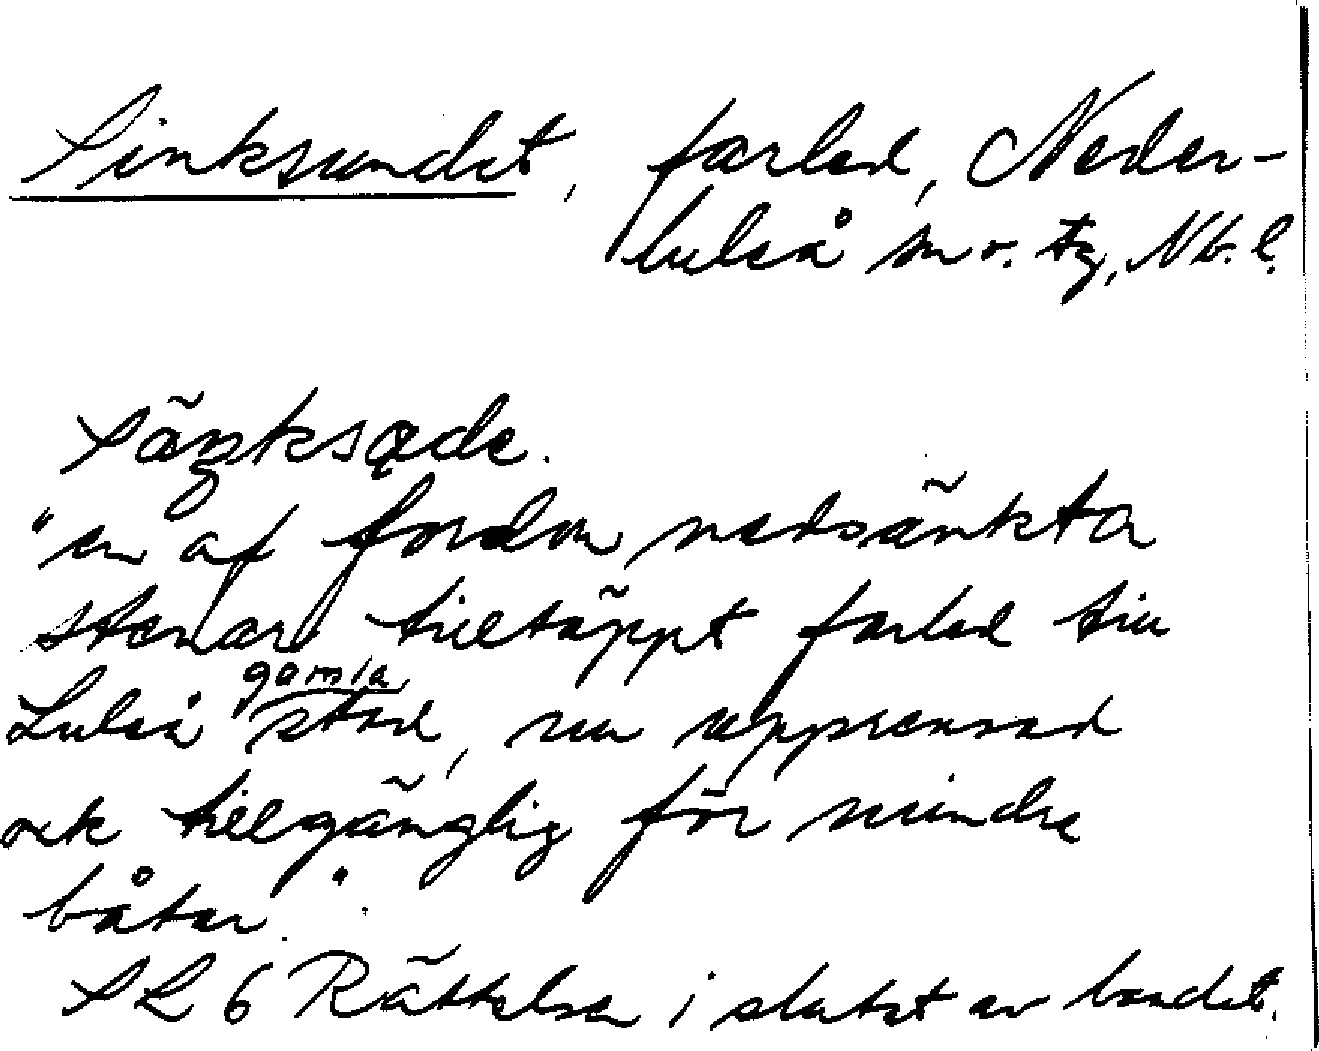 Sinksundet, farled, Neder-
luleå sn o. tg, Nb. l.
Säŋksọde.
"en af fordom nedsänkta
stenar tilltäppt farled till
Luleå gamla stad, nu upprensad
och tillgänglig för mindre
båtar."
SL 6 Rättelser i slutet av bandet.